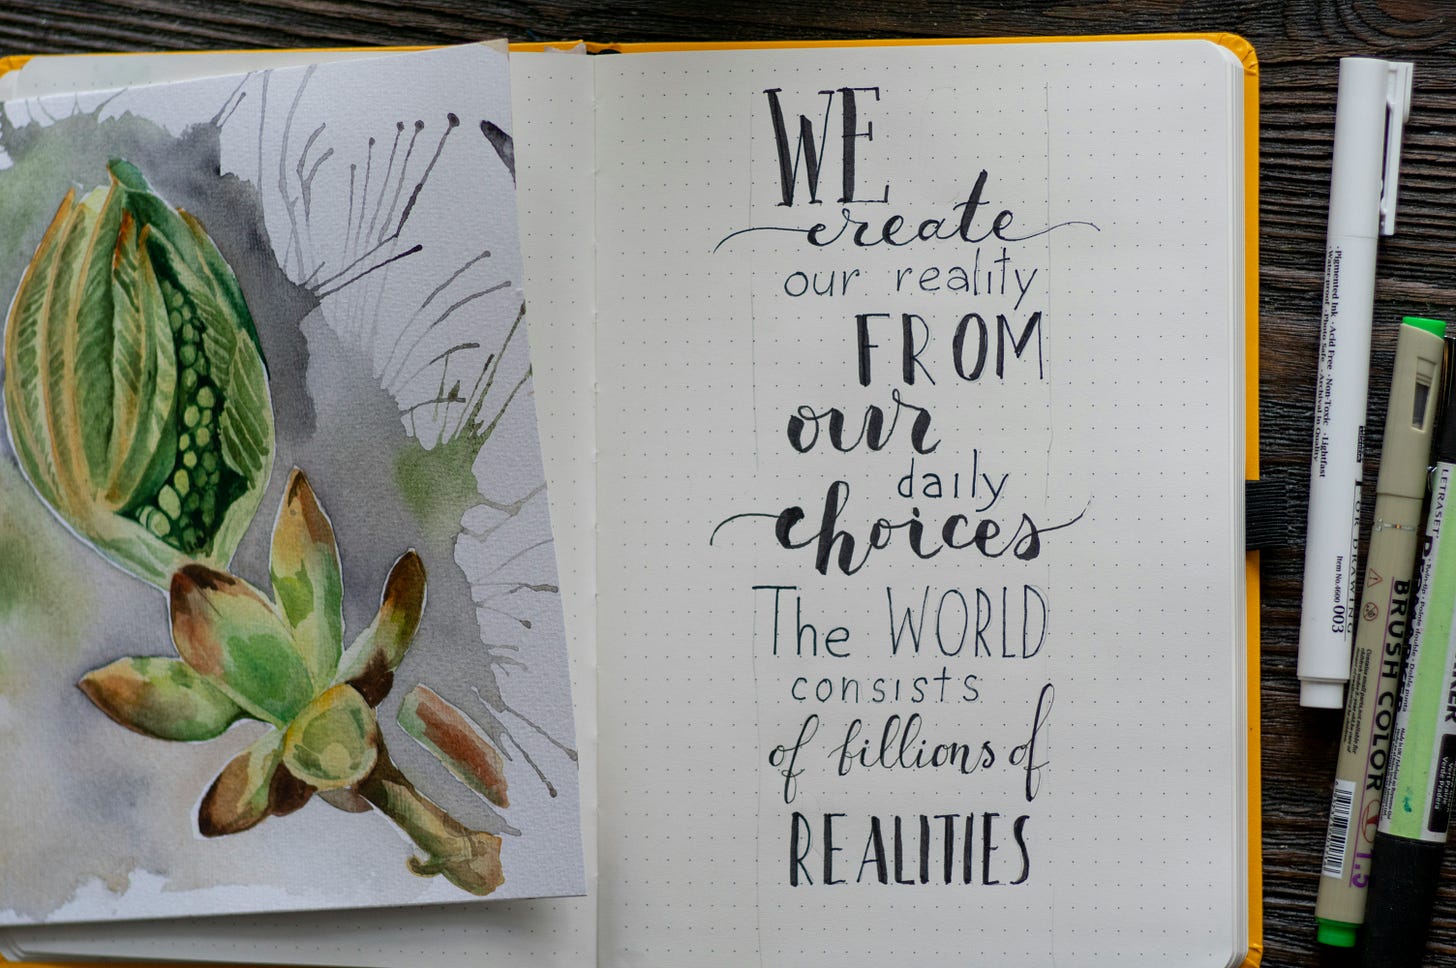 WE
create
our reality
FROM
our
daily
choices
The WORLD
consists
of billions of
REALITIES
· Pigmented Ink · Acid Free · Non-Toxic · Lightfast
· Water proof · Photo Safe · Archival in Quality
FOR DRAWING
Item No.4600 003
BRUSH COLOR
1.5
LETRASET
Verde Pradera